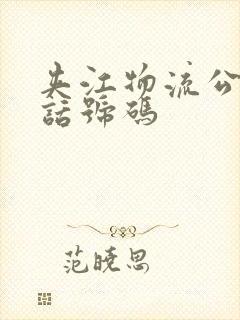 夹江物流公
話號碼
范曉思